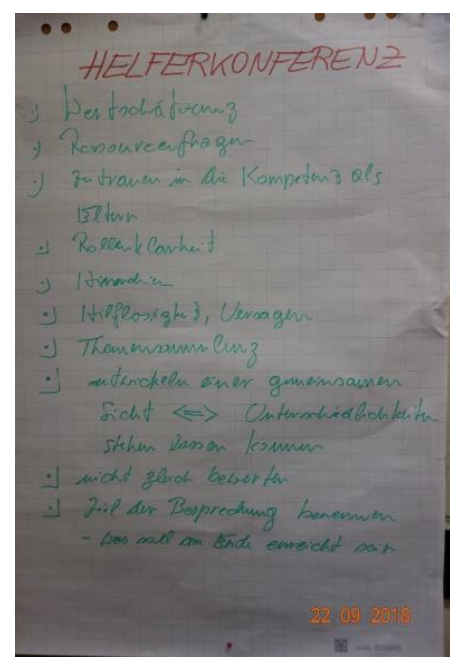 HELFERKONFERENZ
•) Wertschätzung
•) Ressourcenfragen
•) Zutrauen in die Kompetenz als
Eltern
•) Rollenklarheit
•) Hierarchien
•) Hilflosigkeit, Versagen
•) Themensammlung
•) entwickeln einer gemeinsamen
Sicht <=> Unterschiedlichkeiten
stehen lassen können
•) nicht gleich bewerten
•) Ziel der Besprechung benennen
- Was soll am Ende erreicht sein
22 09 2018